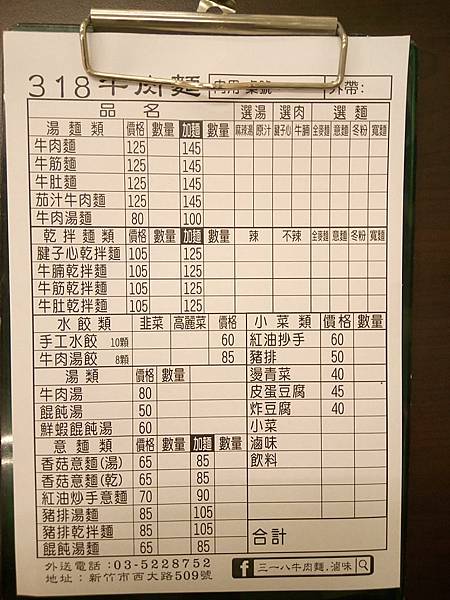 318牛肉麵 內用 桌號 外帶:
品名 選湯 選肉 選麵
湯麵類 價格 數量 加麵 數量 麻辣湯 原汁 腱子心 牛腩 全麥麵 意麵 冬粉 寬麵
牛肉麵 125 145
牛筋麵 125 145
牛肚麵 125 145
茄汁牛肉麵 125 145
牛肉湯麵 80 100
乾拌麵類 價格 數量 加麵 數量 辣 不辣 全麥麵 意麵 冬粉 寬麵
腱子心乾拌麵 105 125
牛腩乾拌麵 105 125
牛筋乾拌麵 105 125
牛肚乾拌麵 105 125
水餃類 韭菜 高麗菜 價格 小菜類 價格 數量
手工水餃 10顆 60 紅油抄手 60
牛肉湯餃 8顆 85 豬排 50
湯類 價格 數量 燙青菜 40
牛肉湯 80 皮蛋豆腐 45
餛飩湯 50 炸豆腐 40
鮮蝦餛飩湯 60 小菜
意麵類 價格 數量 加麵 數量 滷味
香菇意麵(湯) 65 85 飲料
香菇意麵(乾) 65 85
紅油炒手意麵 70 90
豬排湯麵 85 105
豬排乾拌麵 85 105 合計
餛飩湯麵 65 85
外送電話:03-5228752 f 三一八牛肉麵.滷味
地址:新竹市西大路509號